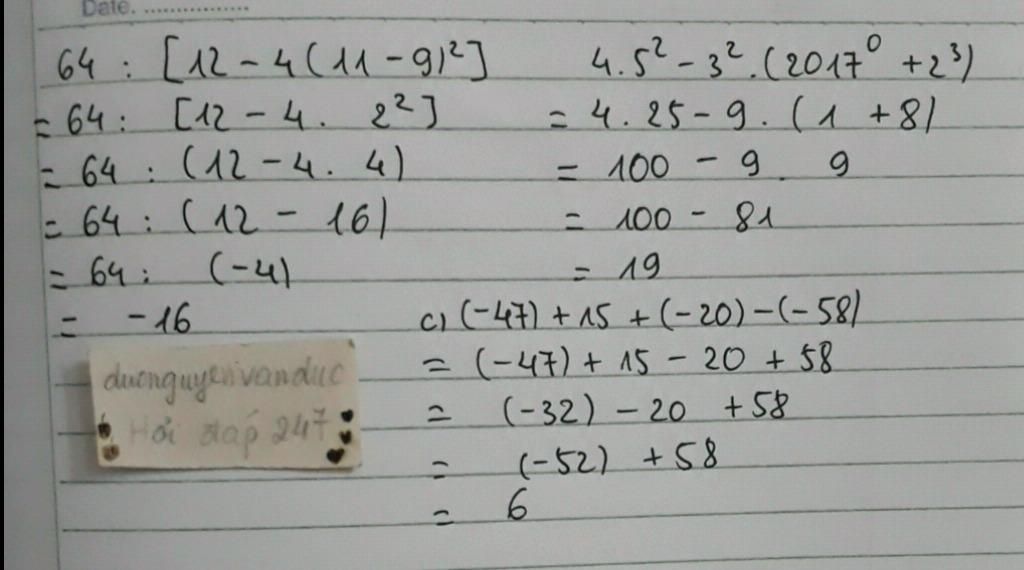 Date. ................
64 : [12 - 4(11 - 9)²]
= 64 : [12 - 4. 2²]
= 64 : (12 - 4. 4)
= 64 : (12 - 16)
= 64 : (-4)
= -16
4.5² - 3².(2017⁰ + 2³)
= 4.25 - 9.(1 + 8)
= 100 - 9 . 9
= 100 - 81
= 19
c) (-47) + 15 + (-20) - (-58)
= (-47) + 15 - 20 + 58
= (-32) - 20 + 58
= (-52) + 58
= 6
duongnguyenvanduc
Hỏi đáp 247